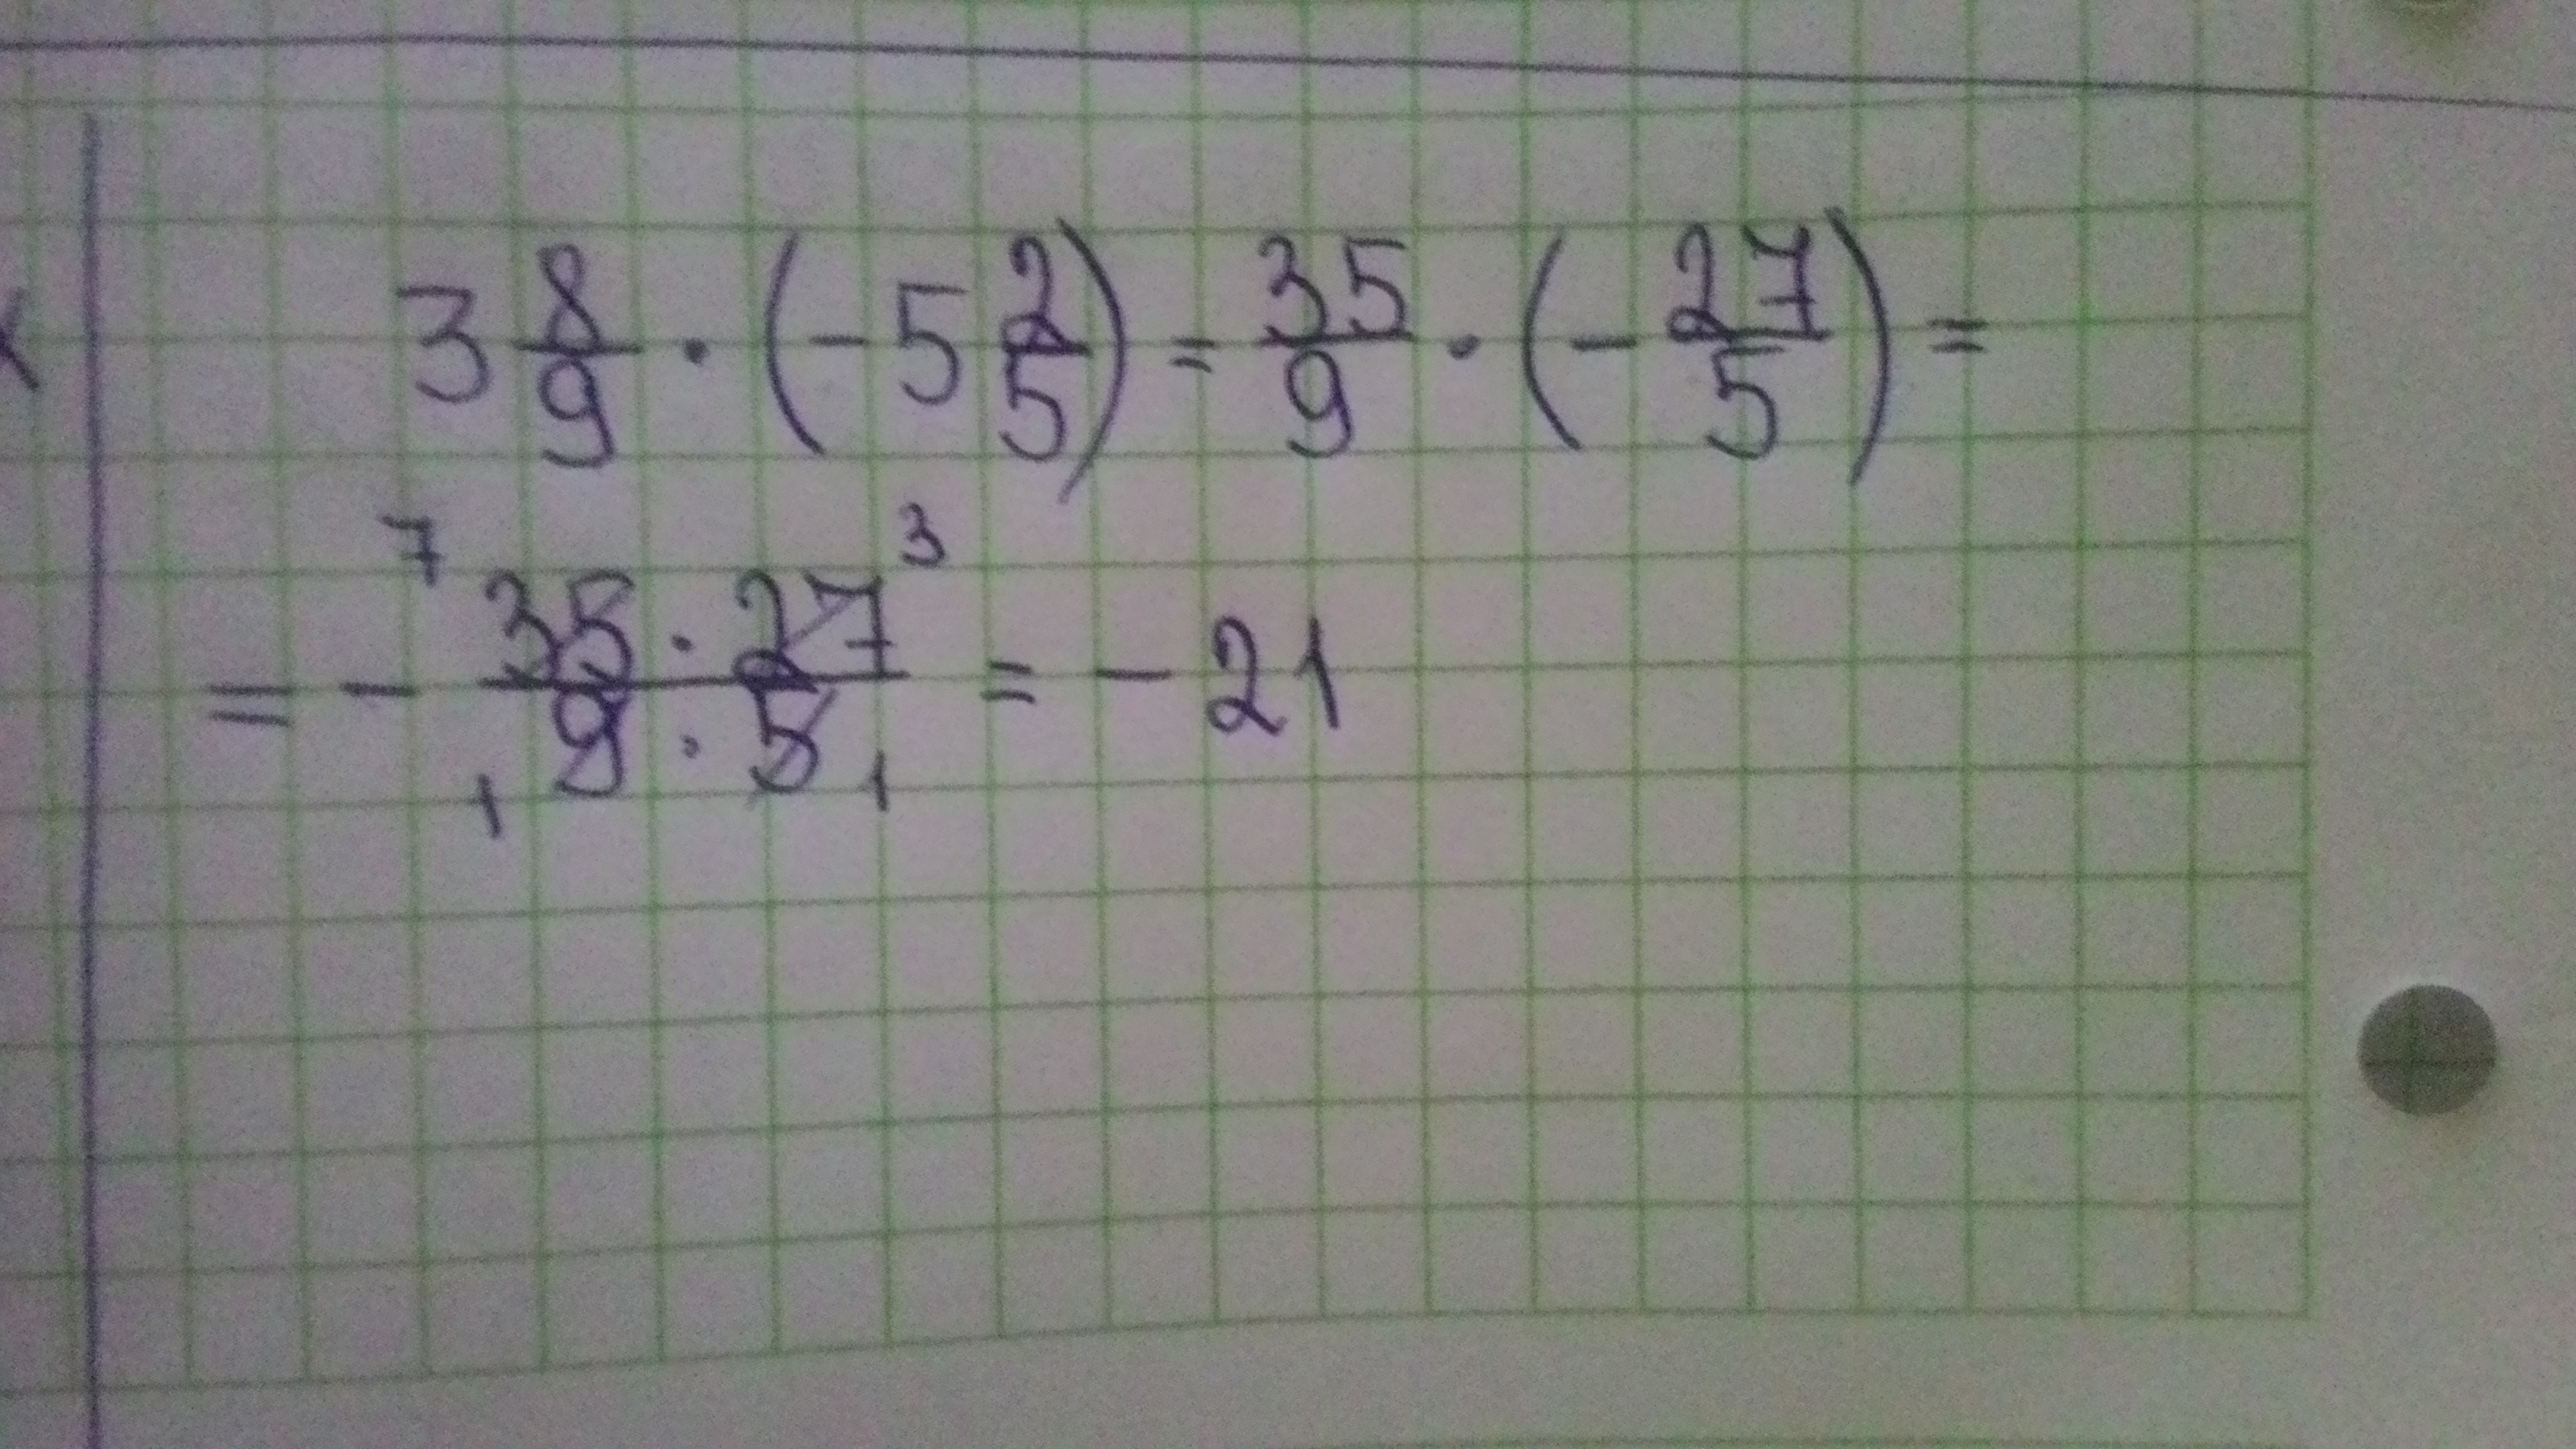 3 8/9 · (-5 2/5) = 35/9 · (-27/5) =
= - 7 35 · 27 3 / 1 9 · 5 1 = -21